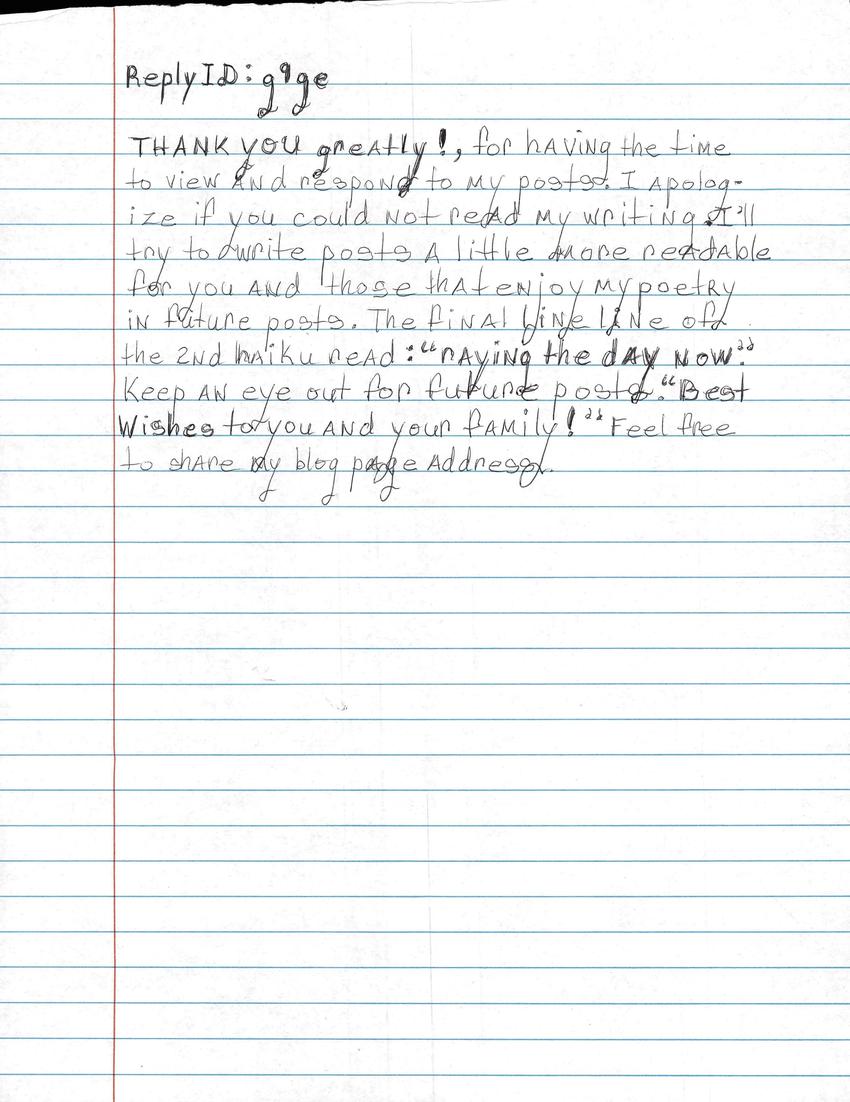 Reply ID: g9ge
THANK you greatly!, for having the time
to view And respond to my posts. I Apolog-
ize if you could not read my writing. I'll
try to write posts A little more readable
for you And those that enjoy my poetry
in future posts. The final line line of
the 2nd haiku read: "raying the day now."
Keep An eye out for future posts. "Best
Wishes to you And your family!" Feel free
to share my blog page Address.